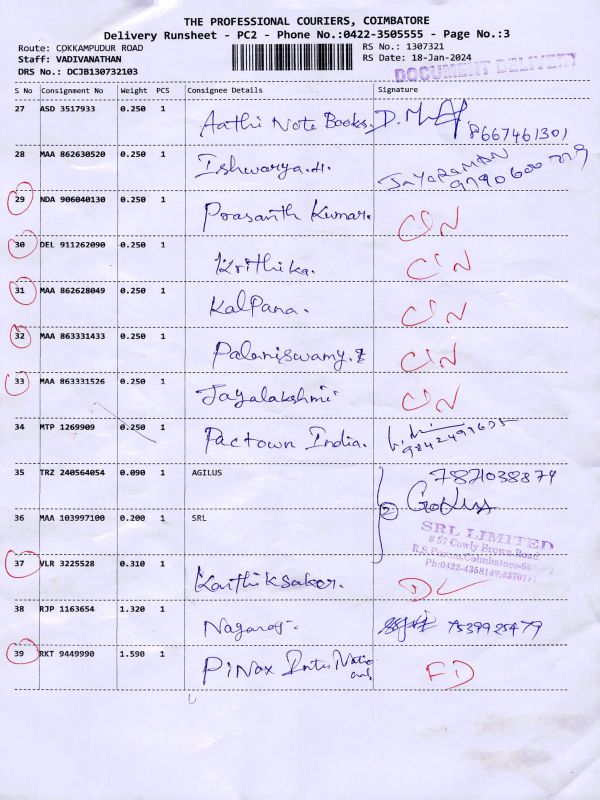 THE PROFESSIONAL COURIERS, COIMBATORE
Delivery Runsheet - PC2 - Phone No.:0422-3505555 - Page No.:3
Route: COKKAMPUDUR ROAD RS No.: 1307321
Staff: VADIVANATHAN RS Date: 18-Jan-2024
DRS No.: DCJB130732103 DOCUMENT DELIVERY
S No Consignment No Weight PCS Consignee Details Signature
27 ASD 3517933 0.250 1 Aathi Note Books. 8667461301
28 MAA 862630520 0.250 1 Ishwarya.H. JAYARAMAN
29 NDA 906040130 0.250 1 Prasanth Kumar. CIN
30 DEL 911262090 0.250 1 Krithika. CIN
31 MAA 862628049 0.250 1 Kalpana. CIN
32 MAA 863331433 0.250 1 Palaniswamy. CIN
33 MAA 863331526 0.250 1 Jayalakshmi CIN
34 MTP 1269909 0.250 1 Pactown India. 9842499635
35 TRZ 240564054 0.090 1 AGILUS 7871038874
36 MAA 103997100 0.200 1 SRL 2
SRL LIMITED
# 57 Cowly Brown Road
R.S. Puram, Coimbatore-641
Ph:0422-4358147,4370117
37 VLR 3225528 0.310 1 Karthiksakar.
38 RJP 1163654 1.320 1 Nagaraj. 7539925479
39 RKT 9449990 1.590 1 Pinax International FD